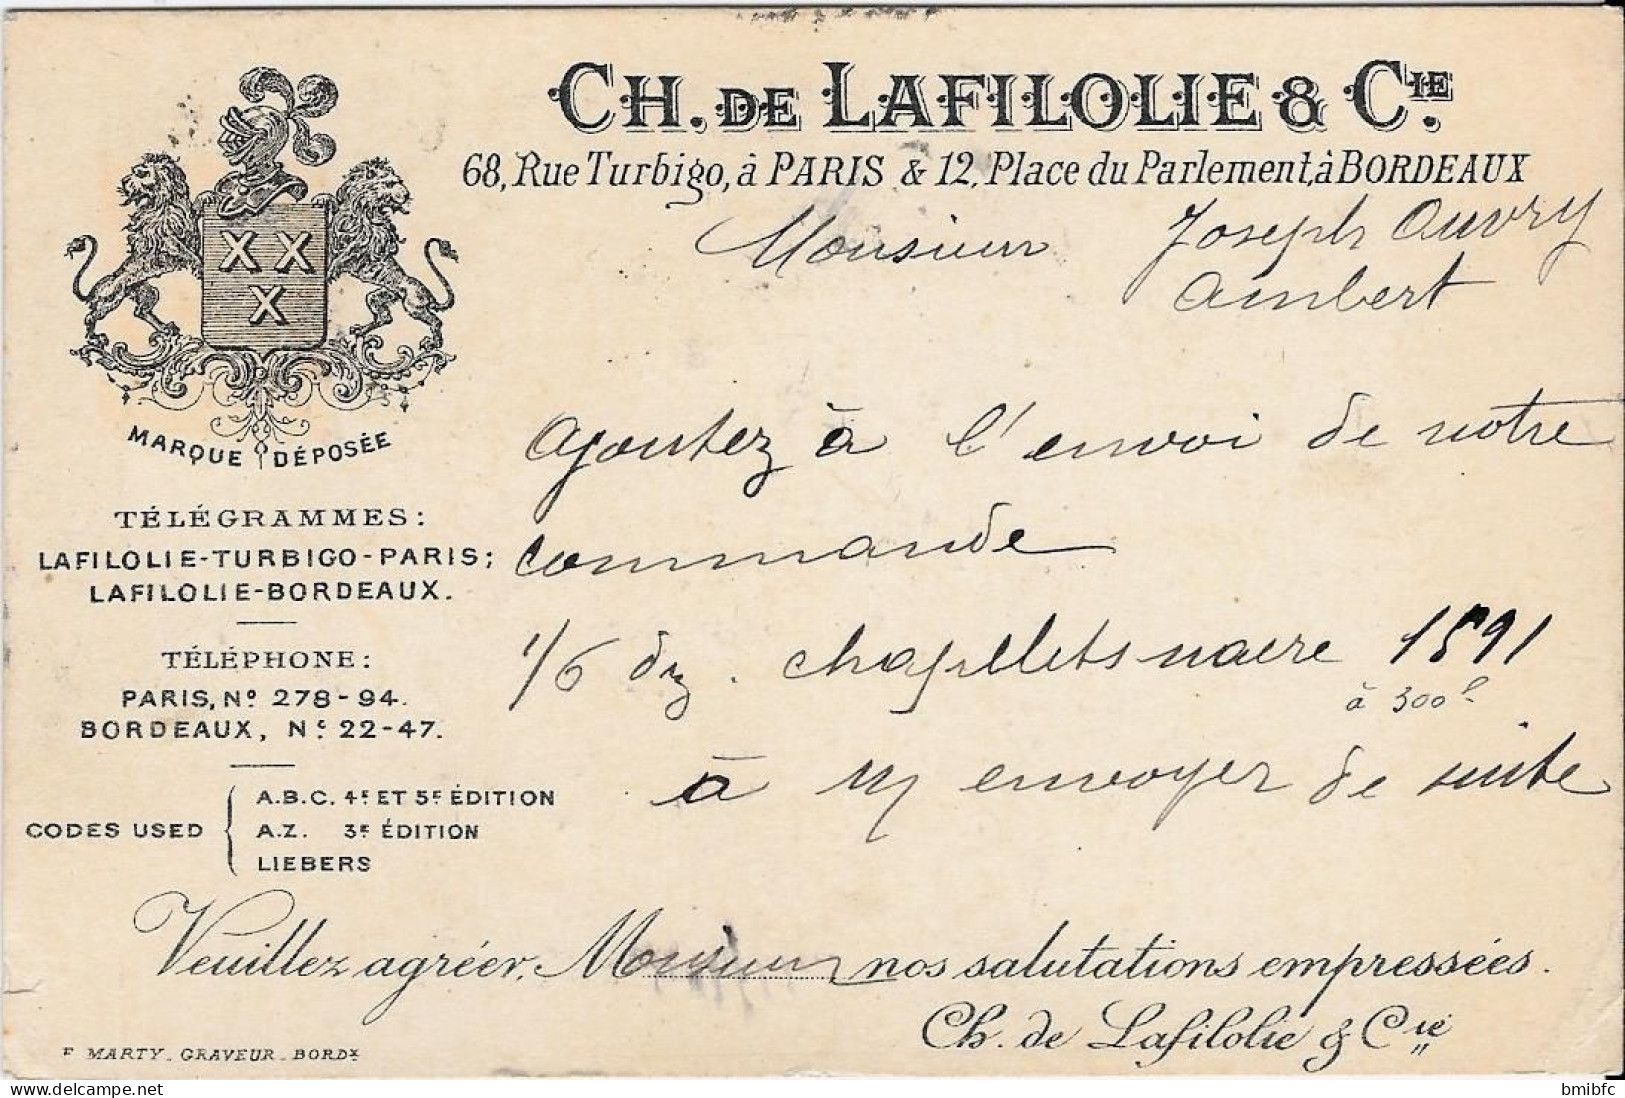 CH. DE LAFILOLIE & CIE.
68, Rue Turbigo, à PARIS & 12, Place du Parlement, à BORDEAUX
Monsieur Joseph Ouvry
Ambert
X X
X
MARQUE DÉPOSÉE
TÉLÉGRAMMES:
LAFILOLIE-TURBIGO-PARIS;
LAFILOLIE-BORDEAUX.
TÉLÉPHONE:
PARIS, No 278-94.
BORDEAUX, No 22-47.
CODES USED
A.B.C. 4E ET 5E ÉDITION
A.Z. 3E ÉDITION
LIEBERS
Ajoutez à l'envoi de notre
commande
1/6 dz. chapellets nacre 1591
à 300
à m envoyer de suite
Veuillez agréer, Monsieur nos salutations empressées.
Ch. de Lafilolie & Cie
F. MARTY. GRAVEUR. BORDX
delcampe.net
bmibfc